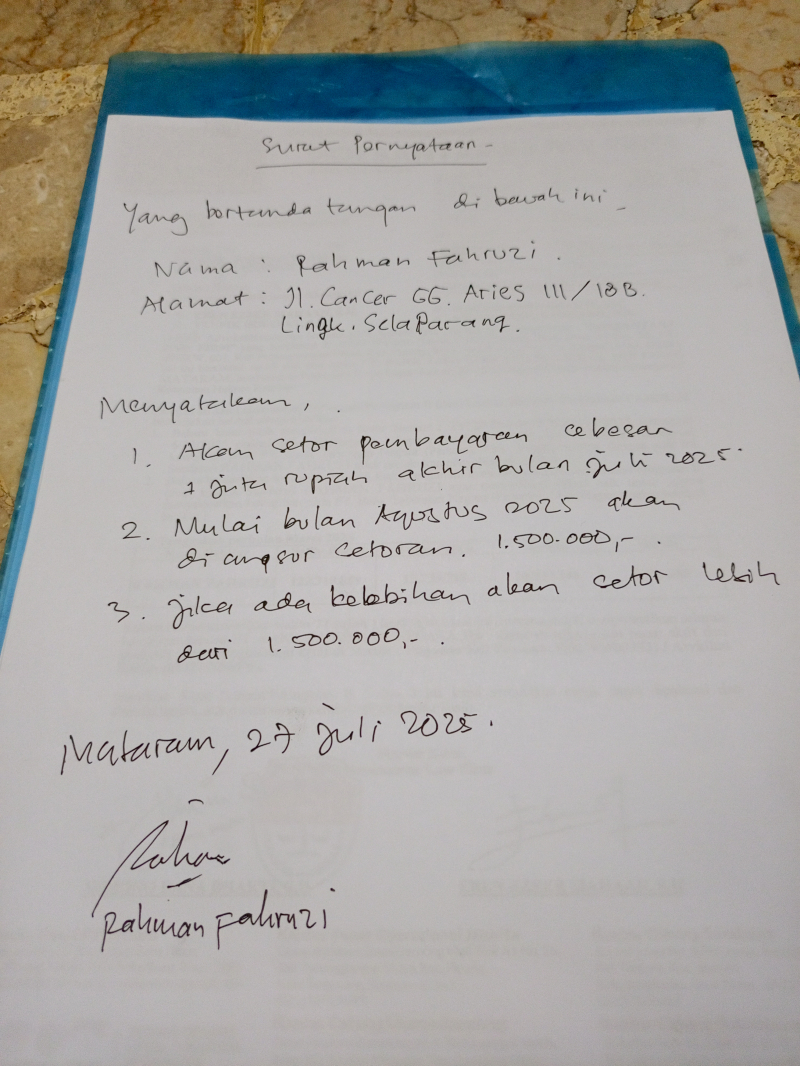 Surat Pernyataan -
Yang bertanda tangan di bawah ini -
Nama : Rahman Fahruzi.
Alamat : Jl. Cancer GG. Aries III/18B.
Lingk. SelaParang.
Menyatakan,
1. Akan setor pembayaran cebesar
1 juta rupiah akhir bulan juli 2025.
2. Mulai bulan Agustus 2025 akan
di angsur cetoran. 1.500.000,- .
3. jika ada kelebihan akan cetor lebih
dari 1.500.000,- .
Mataram, 27 juli 2025.
Rahman Fahruzi